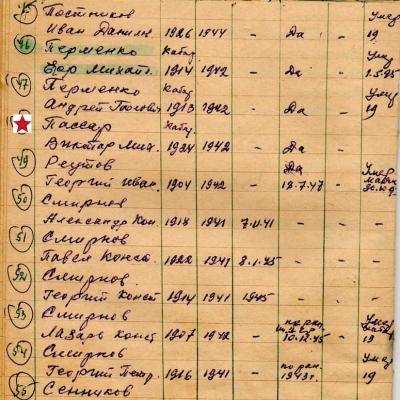 45 Постников
Иван Данил. 1926 1944 - Да - Умер 19
46 Перменко Кавал.
Егор Михайл. 1914 1942 - Да - Умер 1.5.95
47 Перменко Кавал.
Андрей 1913 1942 - Да - Умер 19
Пассар
Виктор Мих. 1924 1942 - Да -
49 Реутов Да
Георгий Иван. 1904 1942 - 18.7.47 - Умер
50 Смирнов
Александр Кон. 1918 1941 7.11.41 - -
51 Смирнов
Павел Конст. 1922 1941 8.1.45 - -
52 Смирнов
Георгий Конст 1914 1941 1945 - - -
53 Смирнов
Лазарь Конст 1907 1942 - 10.12.45 - Умер 19
54 Смирнов
Георгий Петр. 1916 1941 - по ран. 1943г. - Умер 19
55 Сенников